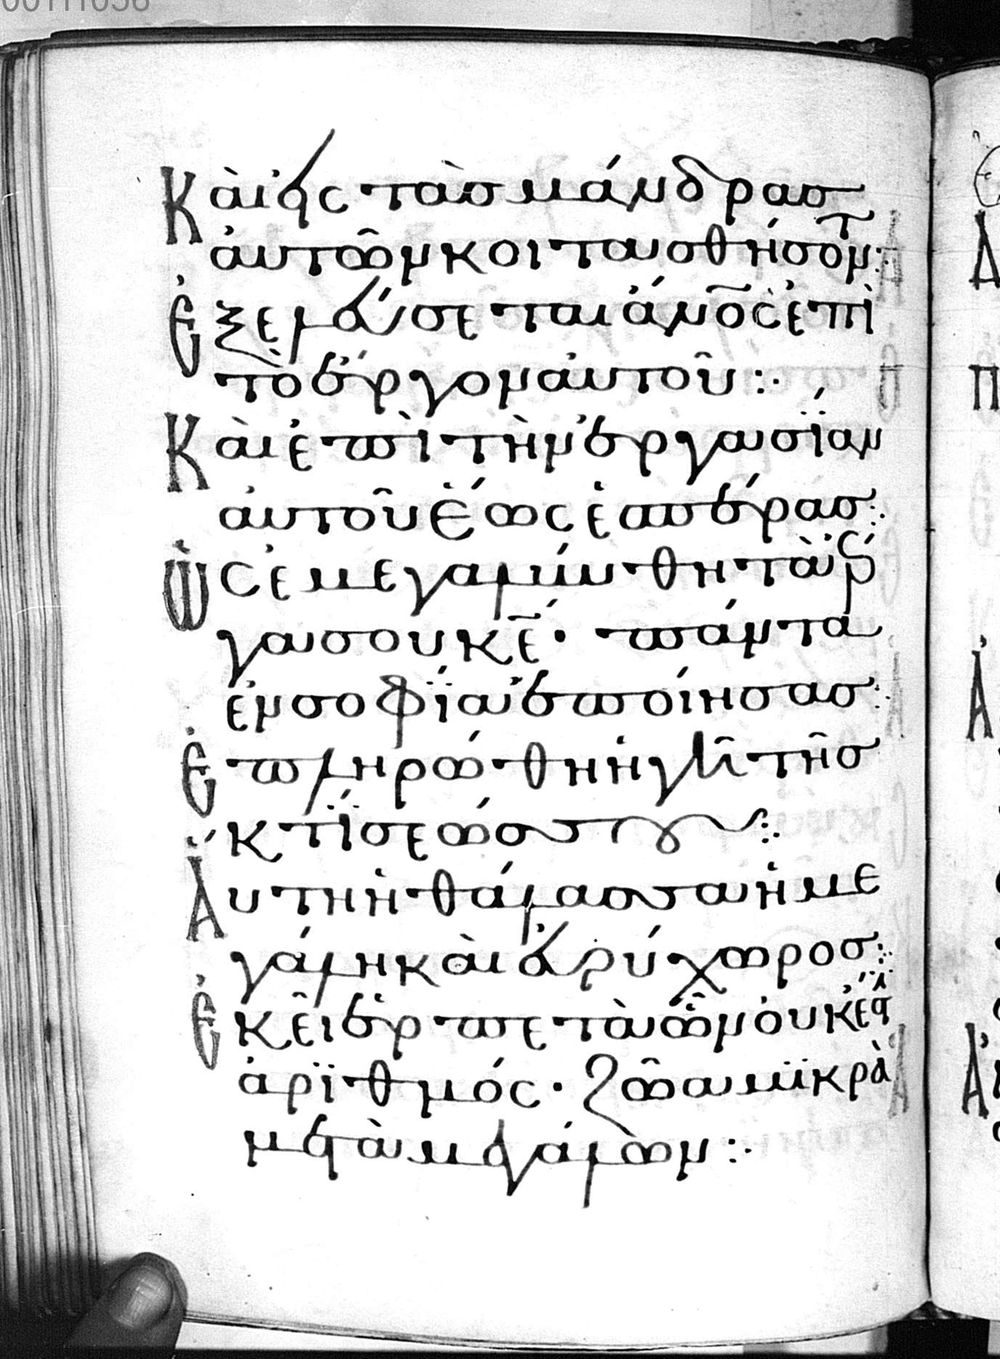 Κὰι εἰς τὰσ μάνδρασ
ἀυτῶν κοιτασθήσοντ:
Ἐξελεύσεται ἄνο̅ς ἐπὶ
τὸ ἔργον ἀυτοῦ:·
Κὰι ἐπὶ τὴν ἐργασΐαν
ἀυτοῦ ἕως ἑσπέρασ:
Ὡς ἐμεγαλύνθη τὰ ἔρ
γα σου κ̅ε· πάντα
ἐν σοφΐα ἐποίησασ:
Ἐπληρώθη ἡ γῆ τῆσ
κτΐσεώσ σου:
Ἁύτη ἡ θάλασσα ἡ με
γάλη κὰι ἐυρύχωροσ:
Ἐκεῖ ἑρπετὰ ὧν ὀυκ ἔστ
ἀρϊθμός· ζῶα μϊκρὰ
μετὰ μεγάλων:·